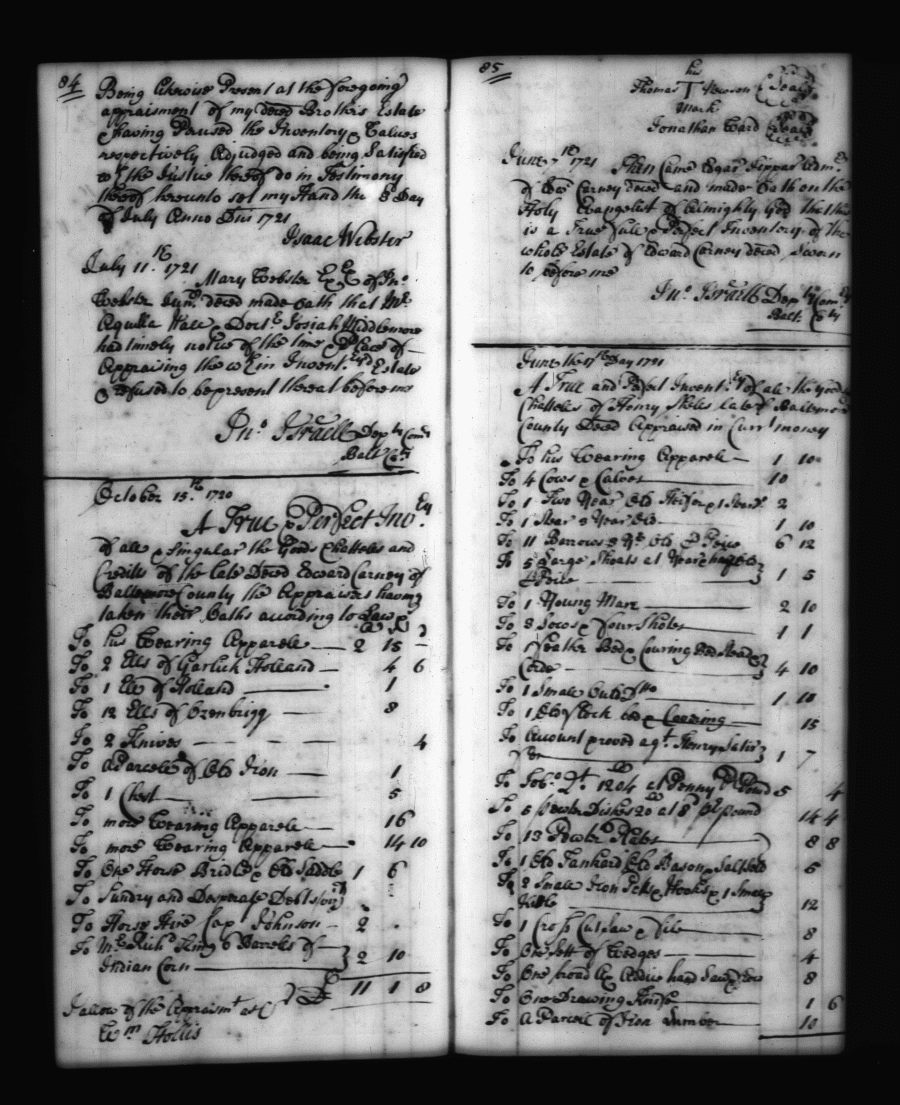 84
Being likewise Present at the foregoing
appraisment of my decd Brothers Estate
& having Perused the Inventory & Values
respectively Adjudged and being Satisfied
wth the Justice thereof do in Testimony
thereof hereunto set my Hand the 8 Day
of July Anno Dni 1721
Isaac Webster
July 11.th 1721
Mary Webster Exex of Jno
Webster Junr decd made oath that Mr
Aquilla Hall & Doctr Josiah Middlemore
had timely notice of the time & Place of
Appraising the wthin Inventryd Estate
& refused to be present thereat before me
Jno Israell Depty Comr
Balt Co
October 15.th 1720
A True & Perfect Invety
of all & Singular the Goods Chattels and
Credits of the late Decd Edward Carney of
Baltemore County the Appraisers having
taken their Oaths according to Law
To his Wearing Apparell 2 15 –
To 2 Ells of Garlick Holland 4 6
To 1 Ell of Holland 1
To 12 Ells of Ozenbrigg 8
To 2 Knives 4
To a Parcell of Old Iron 1
To 1 Chest 5
To more Wearing Apparell 16
To more Wearing Apparell 14 10
To One Horse Bridle & Old Saddle 1 6
To Sundry and Desperate Debts
To Horse Hire Cap Johnson 2
To Mr Richd King 6 Barrels of
Indian Corn 2 10
11 1 8
I allow of the Appraismt
Wm Hollis
85
his
Thomas T Newson Seal
Mark
Jonathan Ward Seal
June 7th 1721 Then Came Edgar Tippar Admr
of Edw Carney decd and made Oath on the
Holy Evangelist of Almighty God that this
is a True full & Perfect Inventory of the
whole Estate of Edward Carney decd Sworn
to before me
Jno Israell Depty Comry
Balt. Coty
June the 17th Day 1721
A True and Perfect Inventry of all the Goods
Chattels of Henry late of Baltemore
County Decd Appraised in Currt money
To his Wearing Apparell 1 10
To 4 Cows & Calves 10
To 1 Two Year Old Heifer & 1 Steard 2
To 1 Stear 3 Year Old 1 10
To 11 Barrows 2 Yr Old & Peice 6 12
To 5 Large Shoats at
& Peice 1 5
To 1 Young Mare 2 10
To 3 Sows & four Shotes 1 1
To 1 Feather Bed & Covring Bed Stead &
Corde 4 10
To 1 Small 1 10
To 1 Old flock bed & Covering 15
To Account proved agt. Henry
1 7
To Tobo Qt. 1204 at Penny Pound 5 4
To 5 Pewter Dishes 20 at 8d pr pound 14 4
To 13 Pewtr Plates 8 8
To 1 Old Tankard Old Bason & Saltseld 5
To 2 Small Iron Potts & Hooks & 1 Small
Kittle 12
To 1 Cross Cut Saw & File 8
To One Sett of Wedges 4
To One broad Ax Addice hand Saw & 8
To One Drawing Knife 1 6
To a Parcell of Iron Lumber 10